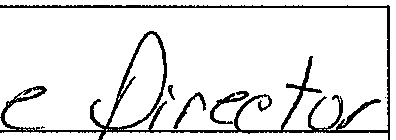 e Director